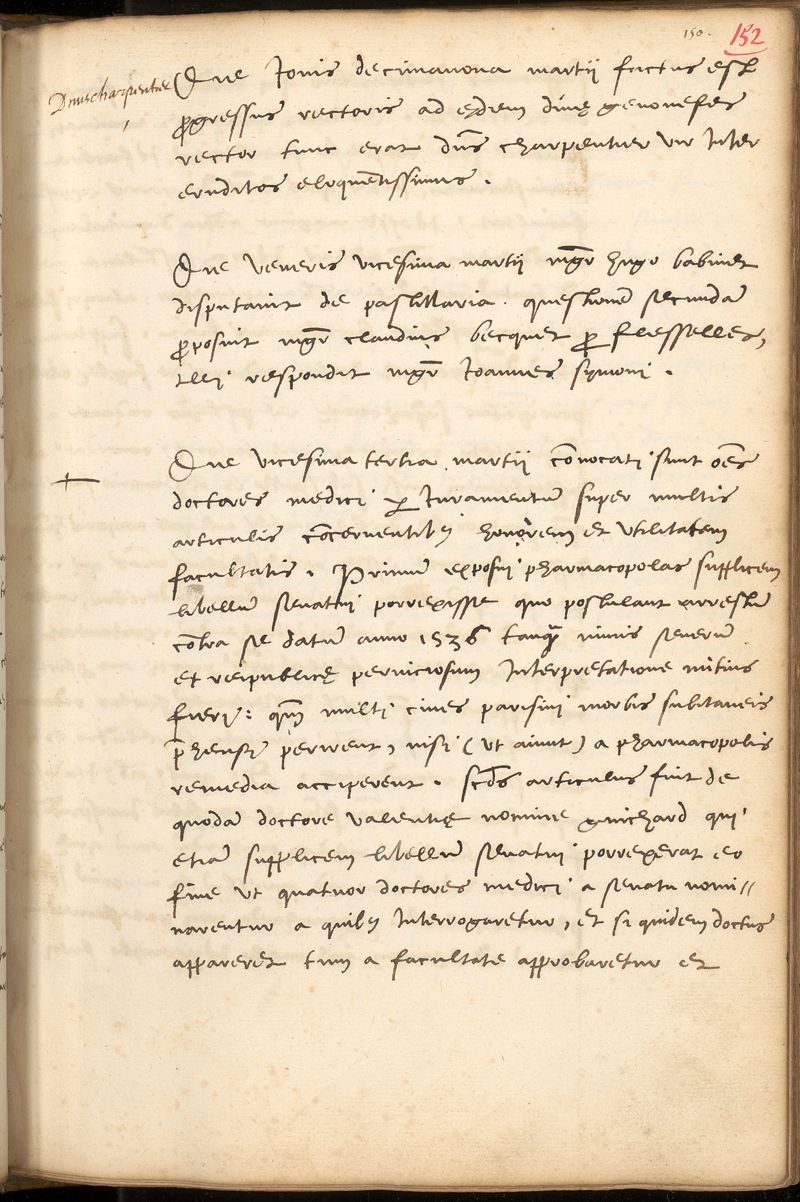 150.
152
Dnus charpentier
Die Jovis decimanona martii factus est
progressus rectoris ad ędem divę genovefes
rector tunc erat dns charpentier vir Inter
eruditos eloquentissimus.
Die veneris vicesima martii mgr hugo babinet
disputavit de pastillaria. questionē secundā
proposuit mgr claudius becquet pro flesselles,
Illi respondit mgr Joannes symoni.
Die vicesima tertia martii cōvocati sunt oēs
doctores medici per Juramentū super multis
articulis cōcernentibus honorem et utilitatem
facultatis. Primū exposui pharmacopolas supplicem
libellū senatui porrexisse quo postulant arrestū
cōtra se datū anno 1536 tanquā nimis severū
et reipublicę perniciosum Interpretatione mitius
fieri: quū multi cives parisini morbis subitaneis
prehensi perirent, nisi (ut aiunt) a pharmacopolis
remedia acciperent. scds articulus fuit de
quodā doctore valentię nomine guichard qui
etiā supplicem libellū senatui porrexerat eo
fine ut quatuor doctores medici a senatu nomi//
narentur a quibus Interrogaretur, et si quidem doctus
appareret tum a facultate approbaretur et